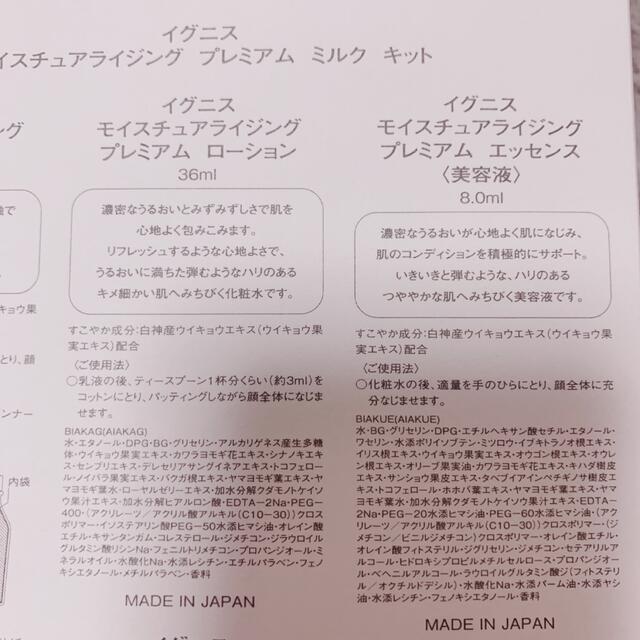 イグニス
イスチュアライジング プレミアム ミルク キット
ング
イグニス
モイスチュアライジング
プレミアム ローション
36ml
濃密なうるおいとみずみずしさで肌を
心地よく包みこみます。
リフレッシュするような心地よさで、
うるおいに満ちた弾むようなハリのある
キメ細かい肌へみちびく化粧水です。
すこやか成分：白神産ウイキョウエキス（ウイキョウ果
実エキス）配合
〈ご使用法〉
○乳液の後、ティースプーン1杯分くらい（約3ml）を
コットンにとり、パッティングしながら顔全体になじま
せます。
BIAKAG(AIAKAG)
水・エタノール・DPG・BG・グリセリン・アルカリゲネス産生多糖
体・ウイキョウ果実エキス・カワラヨモギ花エキス・シナノキエキ
ス・センブリエキス・デレセリアサングイネアエキス・トコフェロー
ル・ノイバラ果実エキス・バクガ根エキス・ヤマヨモギ葉エキス・ヤ
マヨモギ葉水・ローヤルゼリーエキス・加水分解クダモノトケイソ
ウ果汁エキス・加水分解ヒアルロン酸・EDTA-2Na・PEG-
400・（アクリレーツ／アクリル酸アルキル（C10-30））クロス
ポリマー・イソステアリン酸PEG-50水添ヒマシ油・オレイン酸
エチル・キサンタンガム・コレステロール・ジメチコン・ジラウロイル
グルタミン酸リシンNa・フェニルトリメチコン・プロパンジオール・ミ
ネラルオイル・水酸化Na・水添レシチン・エチルパラベン・フェノ
キシエタノール・メチルパラベン・香料
MADE IN JAPAN
イグニス
モイスチュアライジング
プレミアム エッセンス
〈美容液〉
8.0ml
濃密なうるおいが心地よく肌になじみ、
肌のコンディションを積極的にサポート。
いきいきと弾むような、ハリのある
つややかな肌へみちびく美容液です。
すこやか成分：白神産ウイキョウエキス（ウイキョウ果
実エキス）配合
〈ご使用法〉
○化粧水の後、適量を手のひらにとり、顔全体に充
分なじませます。
BIAKUE(AIAKUE)
水・BG・グリセリン・DPG・エチルヘキサン酸セチル・エタノール・
ワセリン・水添ポリイソブテン・ミツロウ・イブキトラノオ根エキス・
イリス根エキス・ウイキョウ果実エキス・オウゴン根エキス・オウレ
ン根エキス・オリーブ果実油・カワラヨモギ花エキス・キハダ樹皮
エキス・サンショウ果皮エキス・タベブイアインペチギノサ樹皮エ
キス・トコフェロール・ホホバ葉エキス・ヤマヨモギ葉エキス・ヤマ
ヨモギ葉水・加水分解クダモノトケイソウ果汁エキス・EDTA-
2Na・PEG-20水添ヒマシ油・PEG-60水添ヒマシ油・（アク
リレーツ／アクリル酸アルキル（C10-30））クロスポリマー・（ジ
メチコン／ビニルジメチコン）クロスポリマー・オレイン酸エチル・
オレイン酸フィトステリル・ジグリセリン・ジメチコン・セテアリルア
ルコール・ヒドロキシプロピルメチルセルロース・プロパンジオー
ル・ベヘニルアルコール・ラウロイルグルタミン酸ジ（フィトステリ
ル／オクチルドデシル）・水酸化Na・水添パーム油・水添ヤシ
油・水添レシチン・フェノキシエタノール・香料
MADE IN JAPAN
内袋